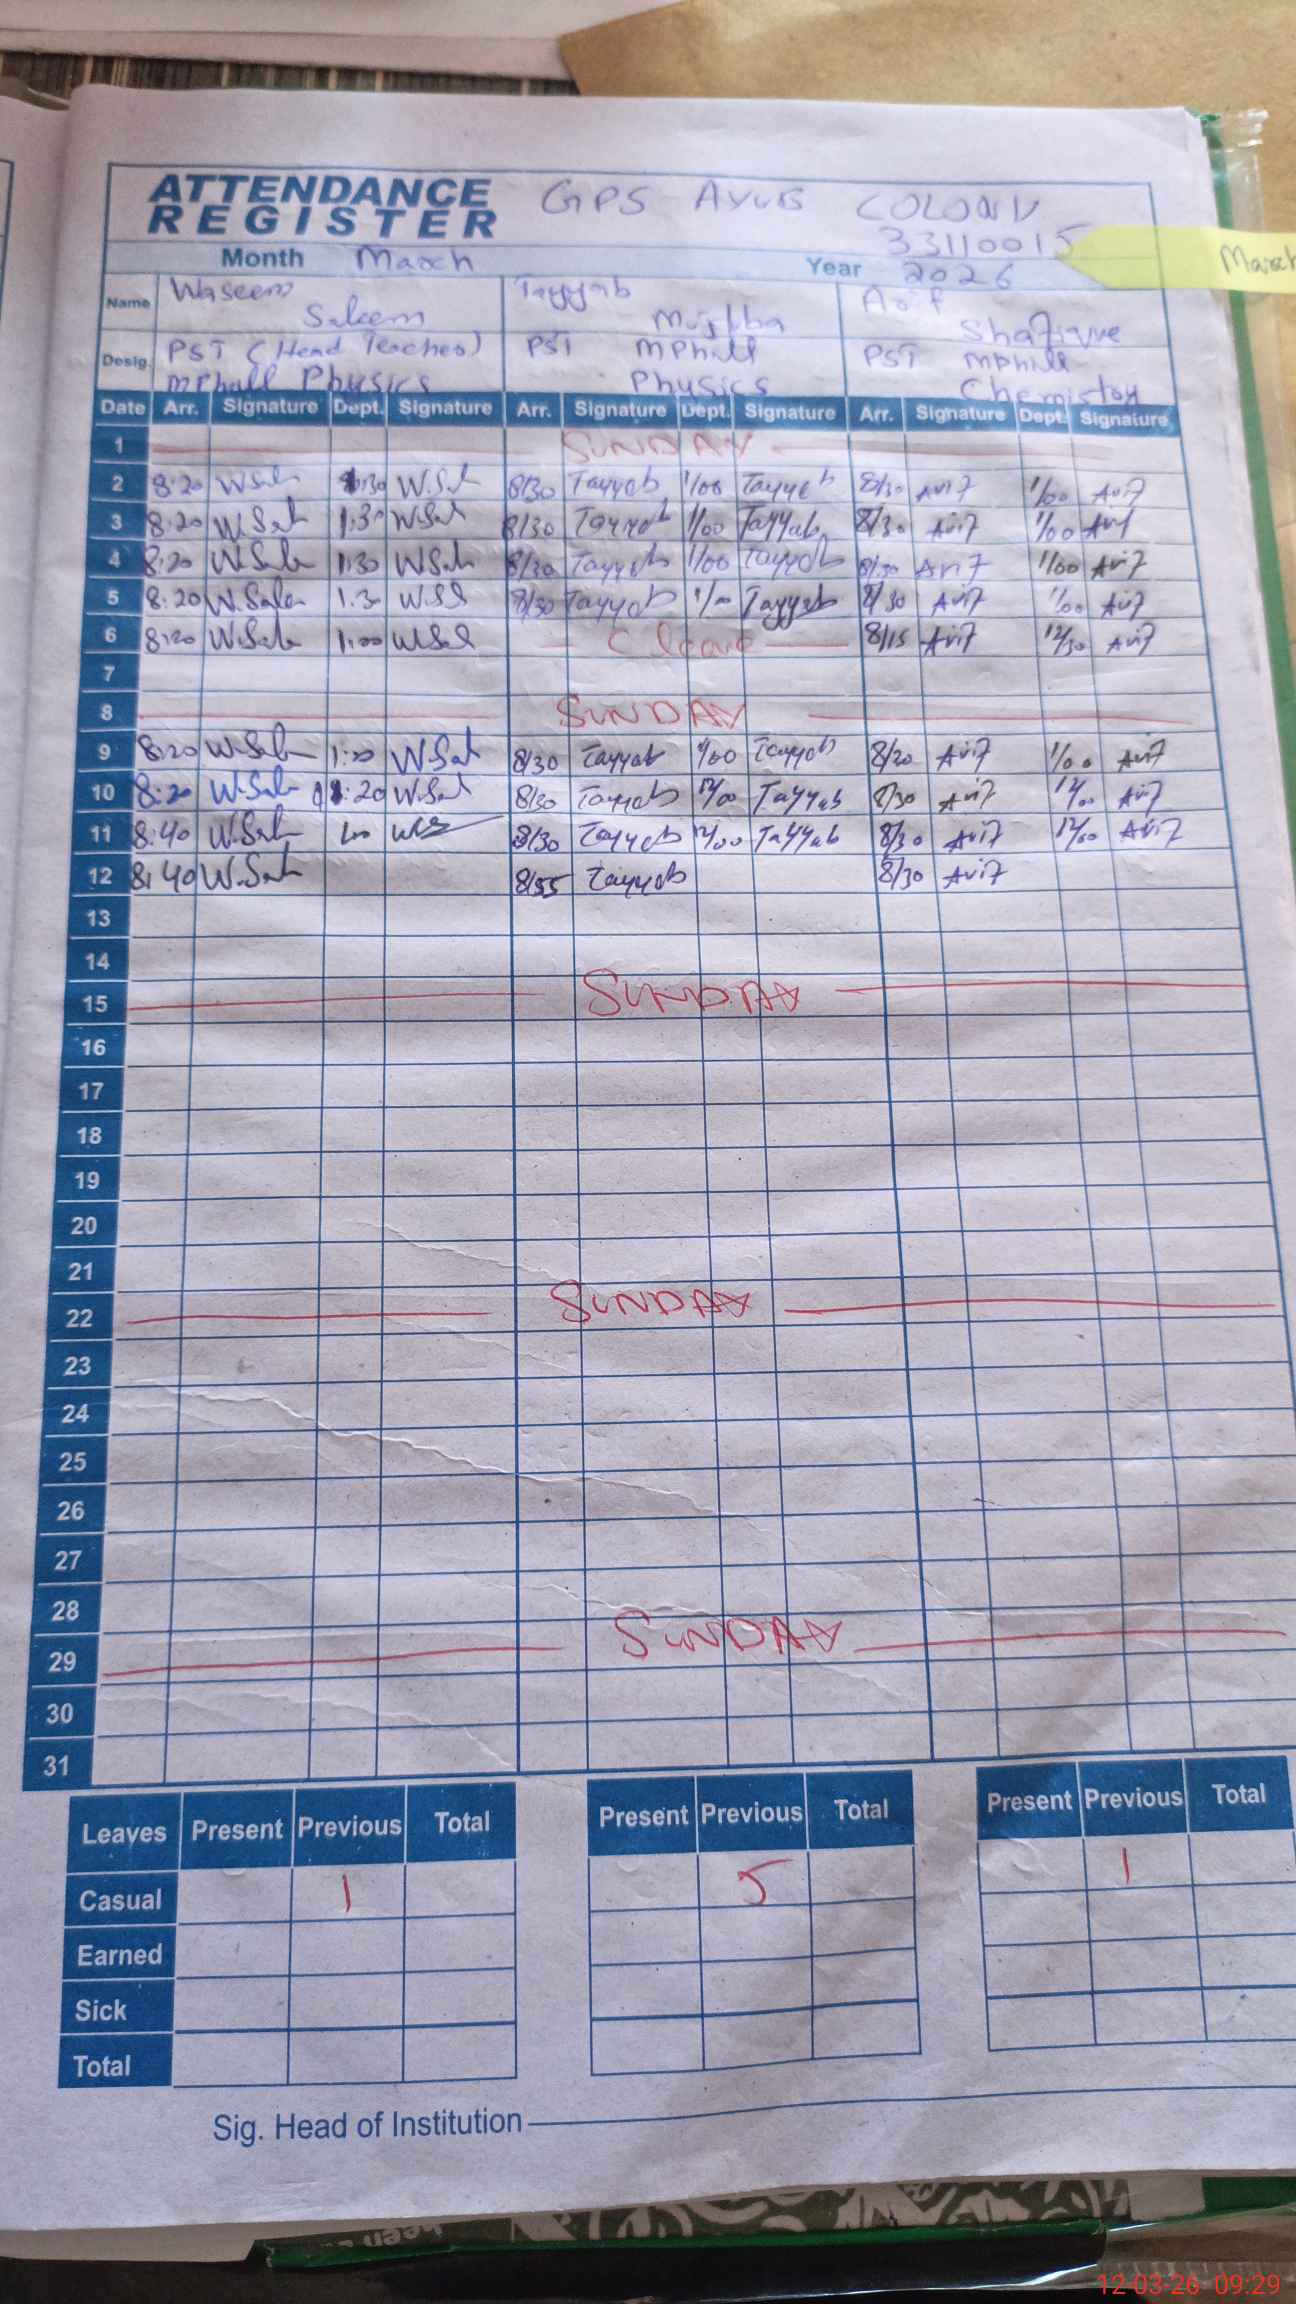 ATTENDANCE REGISTER GPS AYUB COLONY
33110015
Month March Year 2026
March
Name Waseem Saleem Tayyab Mujtba Arif Shafique
Desig. PST (Head Teacher) PST MPhill PST MPhill
MPhill Physics Physics Chemistry
Date Arr. Signature Dept. Signature Arr. Signature Dept. Signature Arr. Signature Dept. Signature
1 SUNDAY
2 8:20 W.Sal 1:30 W.Sal 8/30 Tayyab 1/00 Tayyab 8/30 Arif 1/00 Arif
3 8:20 W.Sal 1:30 W.Sal 8/30 Tayyab 1/00 Tayyab 8/30 Arif 1/00 Arif
4 8:20 W.Sal 1:30 W.Sal 8/30 Tayyab 1/00 Tayyab 8/30 Arif 1/00 Arif
5 8:20 W.Sale 1:30 8/30 Tayyab 1/00 Tayyab 8/30 Arif 1/00 Arif
6 8:20 W.Sal 1:00 C leave 8/15 Arif 12/30 Arif
7
8 SUNDAY
9 8:20 W.Sal W.Sal 8/30 Tayyab 1/00 Tayyab Arif 1/00 Arif
10 8:20 W.Sal 1:20 W.Sal 8/30 Tayyab 12/00 Tayyab 8/30 Arif 12/00 Arif
11 8:40 W.Sal 8/30 Tayyab 12/00 Tayyab 8/30 Arif 12/00 Arif
12 8:40 W.Sal 8/55 Tayyab 8/30 Arif
13
14
15 SUNDAY
16
17
18
19
20
21
22 SUNDAY
23
24
25
26
27
28
29 SUNDAY
30
31
Leaves Present Previous Total Present Previous Total Present Previous Total
Casual 1 5 1
Earned
Sick
Total
Sig. Head of Institution
12-03-26 09:29